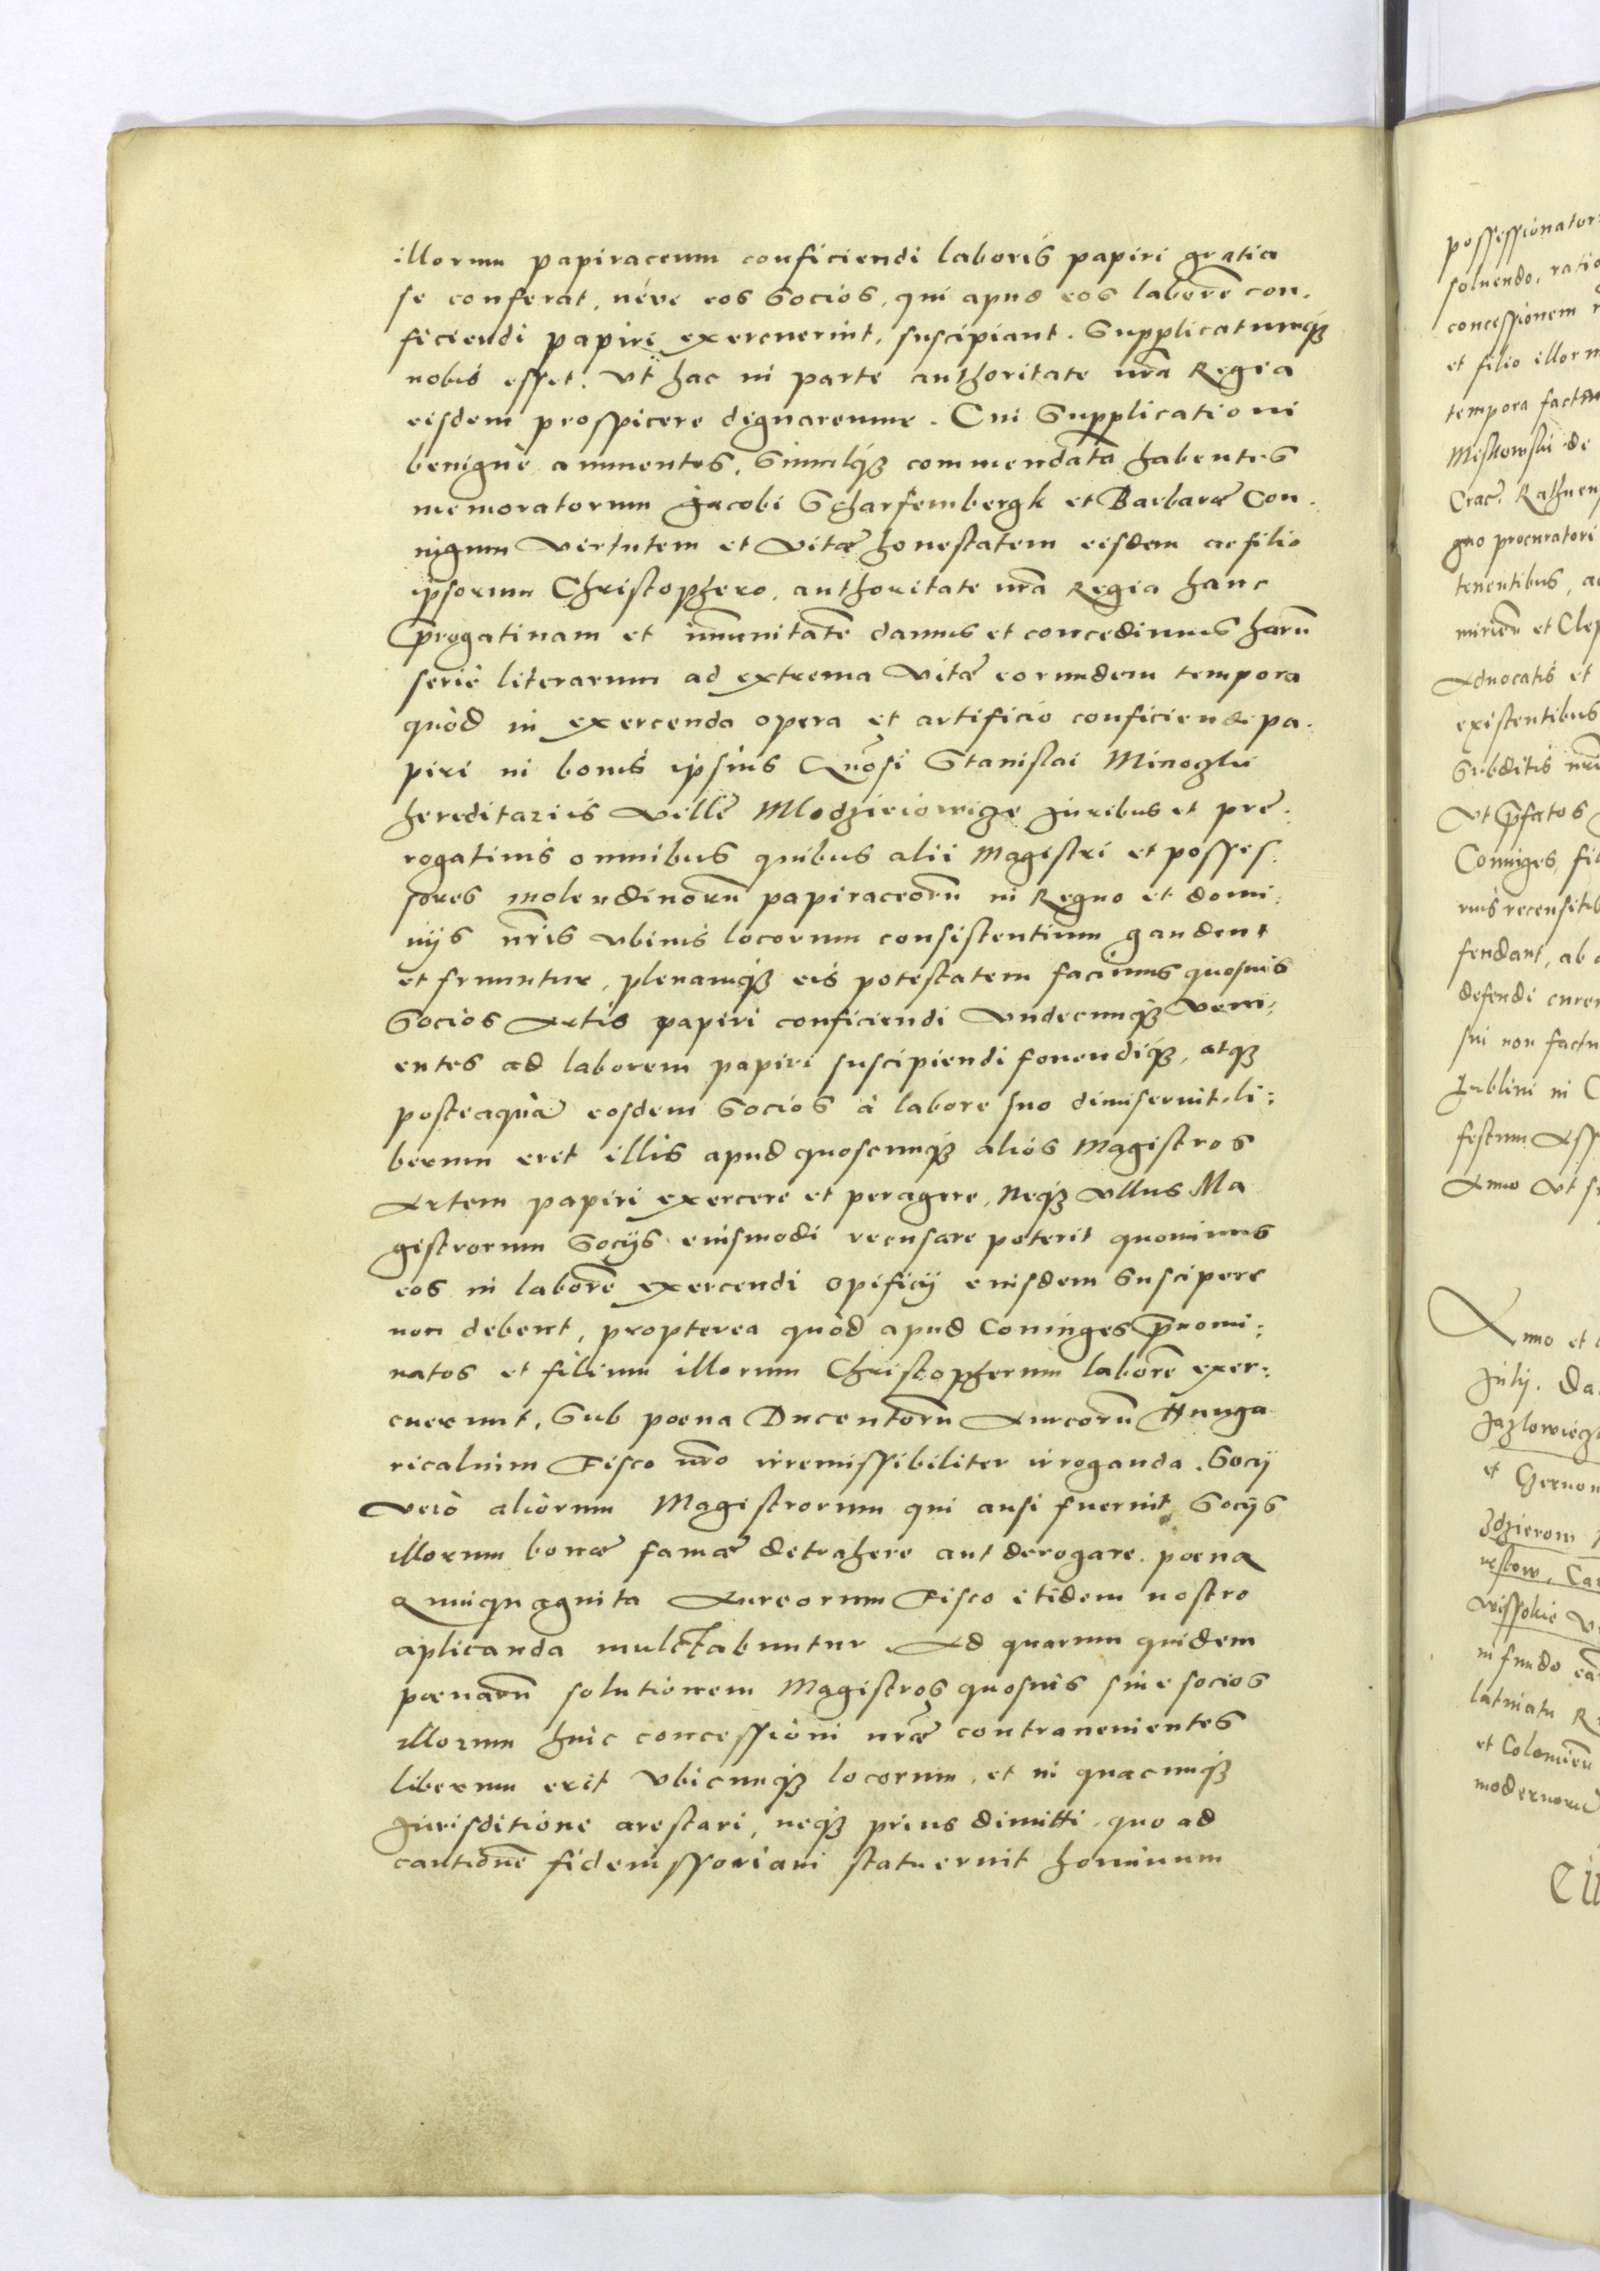 illorum papiraceum conficiendi laboris papiri gratia
se conferat, néve eos socios, qui apud eos laborē con,
ficiendi papiri exercuerint, suscipiant. Supplicatumq3
nobis esset, Vt hac in parte authoritate nrā Regia
eisdem prospicere dignaremur. Cui Supplicationi
benignè annuentes, Simulq3 commendatā habentes
memoratorum Jacobi Scharfembergk et Barbaræ Con,
iugum Virtutem et Vitæ honestatem eisdem ac filio
ipsorum Christophero, authoritate nrā Regia hanc
p̄rogatiuam et im̄unitatē damus et concedimus harū
seriè literarum ad extrema Vitæ eorundem tempora
quòd in exercenda opera et artificio conficiendi pa,
piri in bonis ipsius Gn̄osi Stanislai Minoczki
hereditariis Villę Mlodzieiowicze Juribus et prę,
rogatiuis omnibus quibus alii Magistri et posses,
sores molendinorū papiraceorū in Regno et domi,
nijs nr̄is Vbiuis locorum consistentium gaudent
et fruuntur, plenamq3 eis potestatem facimus quosuis
Socios Artis papiri conficiendi Vndecunq3 Veni,
entes ad laborem papiri suscipiendi fouendiq3, atq3
posteaquā eosdem Socios à labore suo dimiserint, li:
berum erit illis apud quoscunq3 alios Magistros
Artem papiri exercere et peragere, Neq3 Vllus Ma
gistrorum Socijs eiusmodi recusare poterit quominus
eos in laborē exercendi Opificij eiusdem Suscipere
non debent, propterea quòd apud Coniuges p̄nomi:
natos et filium illorum Christopherum laborē exer:
cuerunt, Sub poena Ducentorū Aureorū Hunga
ricalium Fisco nr̄o irremissibiliter irroganda. Socij
Verò aliorum Magistrorum qui ausi fuerint Socijs
illorum bonæ famæ detrahere aut derogare, poena
Quinquaginta Aureorum Fisco itidem nostro
aplicanda mulctabuntur. Ad quarum quidem
pœnarū solutionem Magistros quosuis siue socios
illorum huic concessioni nr̄æ contrauenientes
liberum erit Vbicunq3 locorum, et in quacunq3
Jurisditione arestari, neq3 prius dimitti, quo ad
cautionē fideiussoriam statuerint hominum
possessionator
soluendo, ratio
concessionem
et filio illorum
tempora factam
Miskowski de
Crac. Rathnen
gno procuratori
tenentibus, ac
mirien et Clep
Aduocatis et
existentibus
Subditis nr̄is
Vt p̄fatos
Coniuges, fil
rius recensitis
fendant, ab
defendi curen
sui non factu
Lublini in C
festum Ass
Anno Vt s
Anno et
Julij. Da
Jazlowiecz
et Czerwon
Zdzierow
Wissokie V
in fundo
latinatu
et Colomien
modernoru